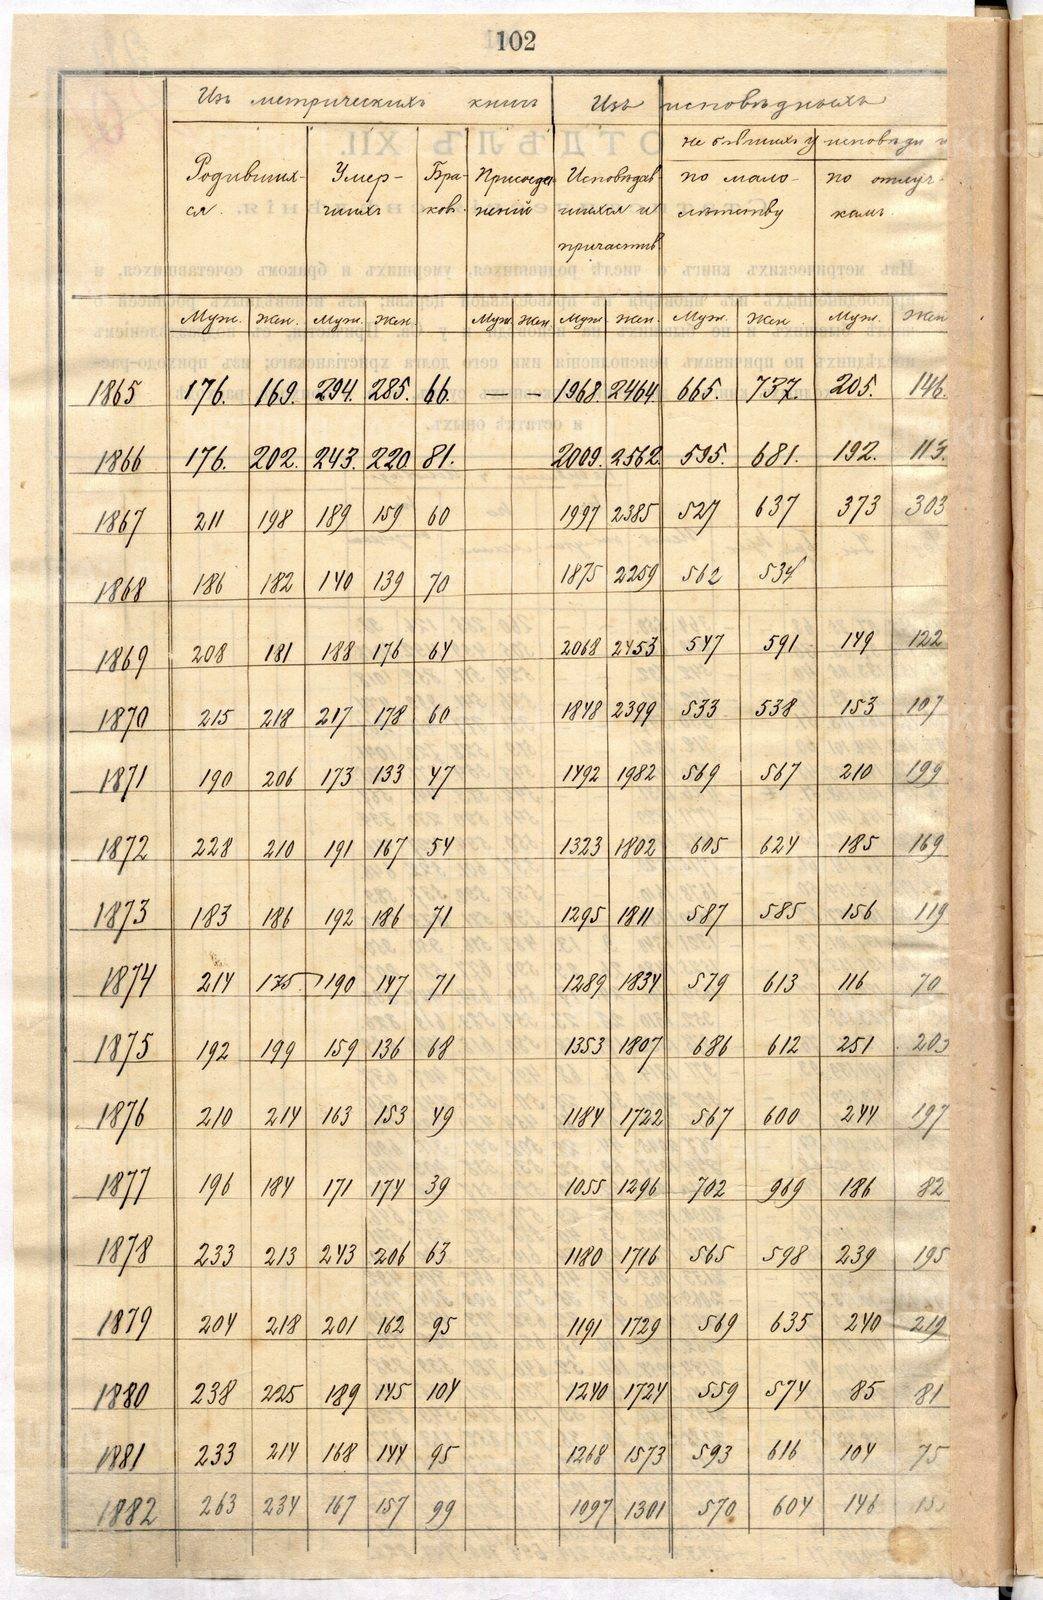 102
Изъ метрическихъ книгъ Изъ исповѣдныхъ
не бывшихъ у исповѣди и
Родивших- Умер- Бра- Присоеде- Исповѣдав- по мало- по отлуч-
ся. шихъ ковъ. неній шихся и лѣтству камъ.
причастив.
Муж. Жен. Муж. Жен. Муж. Жен. Муж. Жен. Муж. Жен. Муж. Жен
1865 176. 169. 294. 285. 66. — — 1968. 2464 665. 737. 205. 146.
1866 176. 202. 243. 220. 81. 2009. 2562. 595. 681. 192. 113.
1867 211 198 189 159 60 1997 2385 527 637 373 303
1868 186 182 140 139 70 1875 2259 562 534
1869 208 181 188 176 64 2068 2453 547 591 149 122
1870 215 218 217 178 60 1848 2399 533 538 153 107
1871 190 206 173 133 47 1492 1982 569 567 210 199
1872 228 210 191 167 54 1323 1802 605 624 185 169
1873 183 186 192 186 71 1295 1811 587 585 156 119
1874 214 175 190 147 71 1289 1834 579 613 116 70
1875 192 199 159 136 68 1353 1807 686 612 251 203
1876 210 214 163 153 49 1184 1722 567 600 244 197
1877 196 184 171 174 39 1055 1296 702 969 186 82
1878 233 213 243 206 63 1180 1716 565 598 239 195
1879 204 218 201 162 95 1191 1729 569 635 240 219
1880 238 225 189 145 104 1240 1724 559 574 85 81
1881 233 214 168 144 95 1268 1573 593 616 104 75
1882 263 234 167 157 99 1097 1301 570 604 146